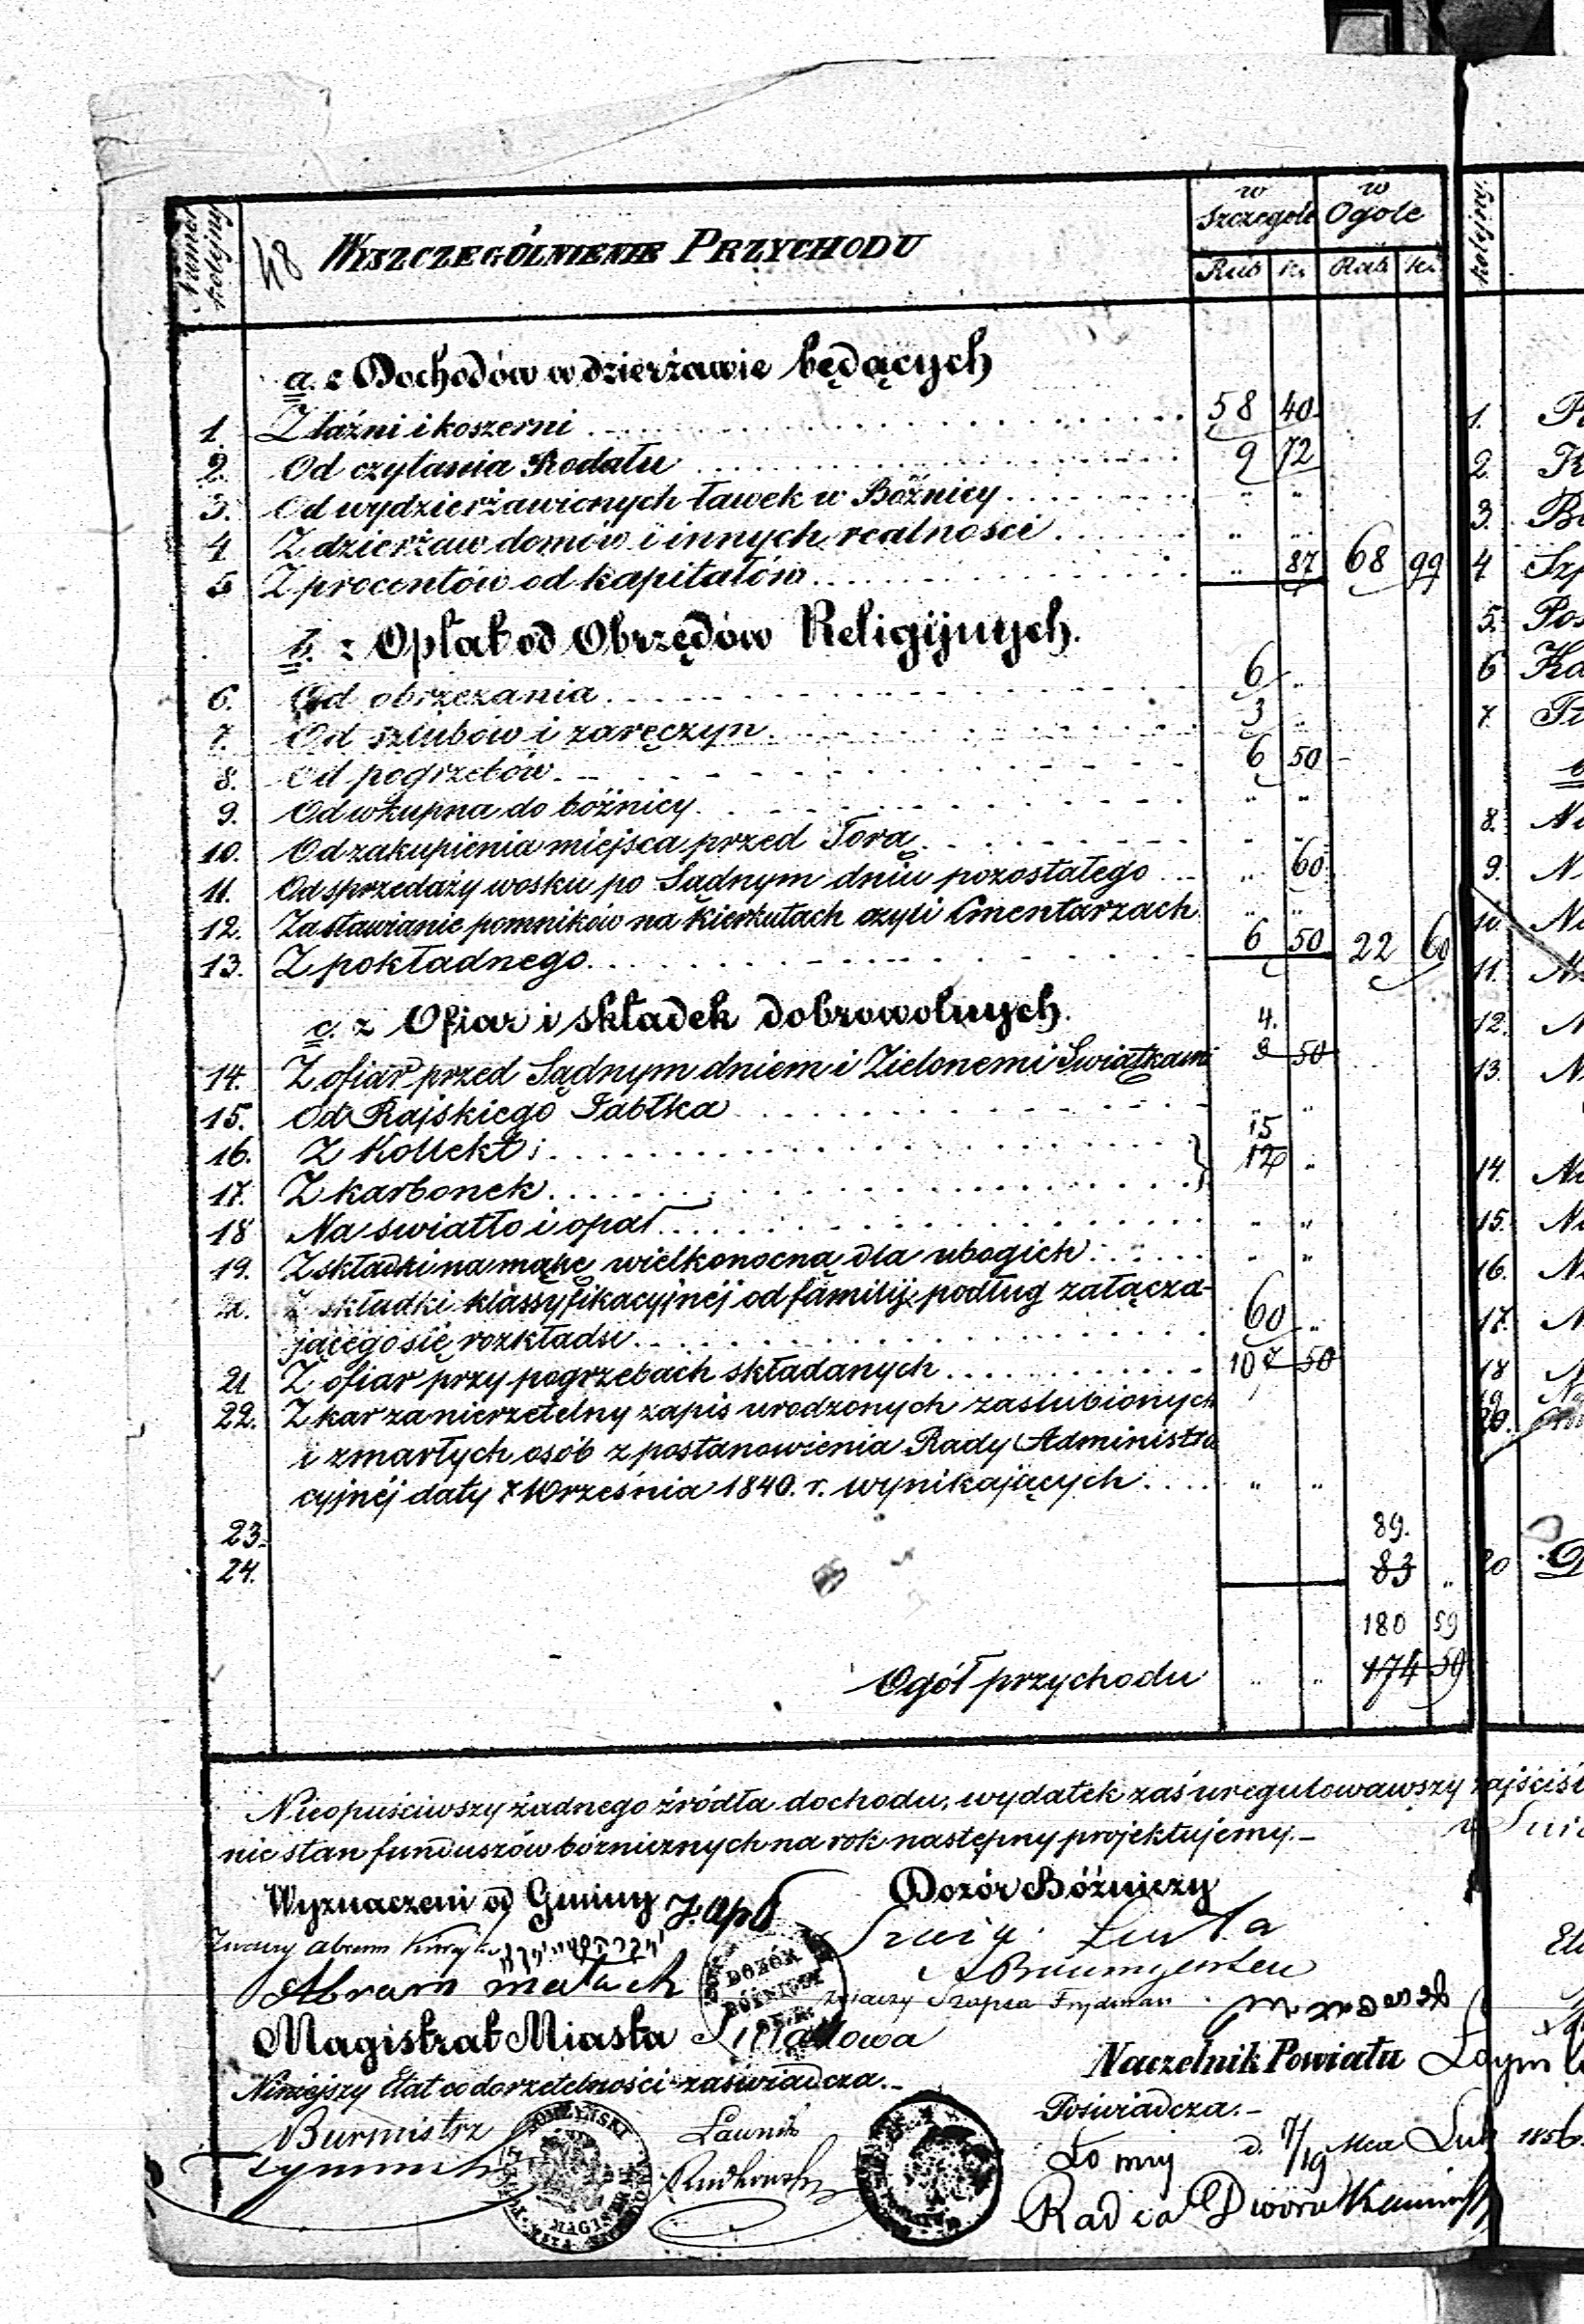 w Szczególe w Ogóle
Numer kolejny 48 WYSZCZEGÓLNIENIE PRZYCHODU Rub k. Rub k. kolejny
a. z Dochodów w dzierżawie będących
1. Z łaźni i koszerni 58 40 1.
2. Od czytania Rodału 9 72 2.
3. Od wydzierżawionych ławek w Bóżnicy „ „ 3.
4 Z dzierżaw domów i innych realności „ „
5 Z procentów od kapitałów „ 87 68 99 4
b. z Opłat od Obrzędów Religijnych. 5.
6. Od obrzezania 6 „ 6
7. Od szlubów i zaręczyn 3 „ 7.
8. Od pogrzebów 6 50
9. Od wkupna do bóżnicy „ „
10. Od zakupienia miejsca przed Torą „ „ 8.
11. Od sprzedaży wosku po Sądnym dniu pozostałego „ 60 9.
12. Za stawianie pomników na kierkutach czyli Cmentarzach „ „ 10.
13. Z pokładnego 6 50 22 60 11.
c. z Ofiar i składek dobrowolnych. 4. 12.
14. Z ofiar przed Sądnym dniem i Zielonemi Swiątkami 3 50 13.
15. Od Rajskiego Jabłka „ „
16. Z Kollekt 15
17. Z karbonek 12 „ 14.
18 Na swiatło i opał „ „ 15.
19. Z składki na macę wielkonocną dla ubogich „ „ 16.
20. Z składki klassyfikacyjnéj od familij podług załącza-
jącego się rozkładu 60 „ 17.
21 Z ofiar przy pogrzebach składanych 10 7 50 18
22. Z kar za nierzetelny zapis urodzonych zaslubionych 19
i zmarłych osób z postanowienia Rady Administra 20.
cyjnéj daty 7 Września 1840. r. wynikających „ „
23. 89.
24. 83 „ 20
180 59
Ogół przychodu „ „ 174 59
Nieopuściwszy żadnego źródła dochodu, wydatek zaś uregulowawszy
nie stan funduszów bóżnicznych na rok następny projektujemy.
Wyznaczeni od Gminy Dozór Bóżniczy
Abram
DOZÓR BÓŻNICZY
Szapsa Frydman
Magistrat Miasta
Naczelnik Powiatu
Niniejszy Etat co do rzetelności zaświadcza.
Poświadcza.
Burmistrz Ławnik
d. 7/19 Mca 1856.
Radca Dworu